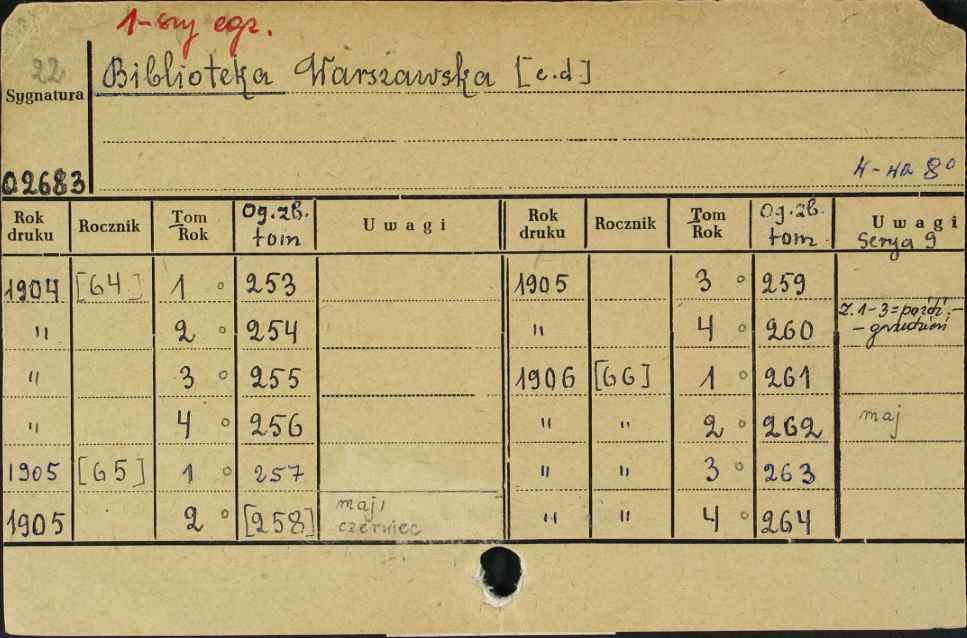 1-szy egz.
22
Biblioteka Warszawska [c.d]
Sygnatura
02683
4-na 8°
Rok druku Rocznik Tom Rok Og. zb. tom Uwagi Rok druku Rocznik Tom Rok Og. zb. tom Uwagi Serya 9
1904 [64] 1 ° 253 1905 3 ° 259
" 2 ° 254 " 4 ° 260 z. 1-3 = paźdź.- -grudzień
" 3 ° 255 1906 [66] 1 ° 261
" 4 ° 256 " " 2 ° 262 maj
1905 [65] 1 ° 257 " " 3 ° 263
1905 2 ° [258] maj, czerwiec " " 4 ° 264